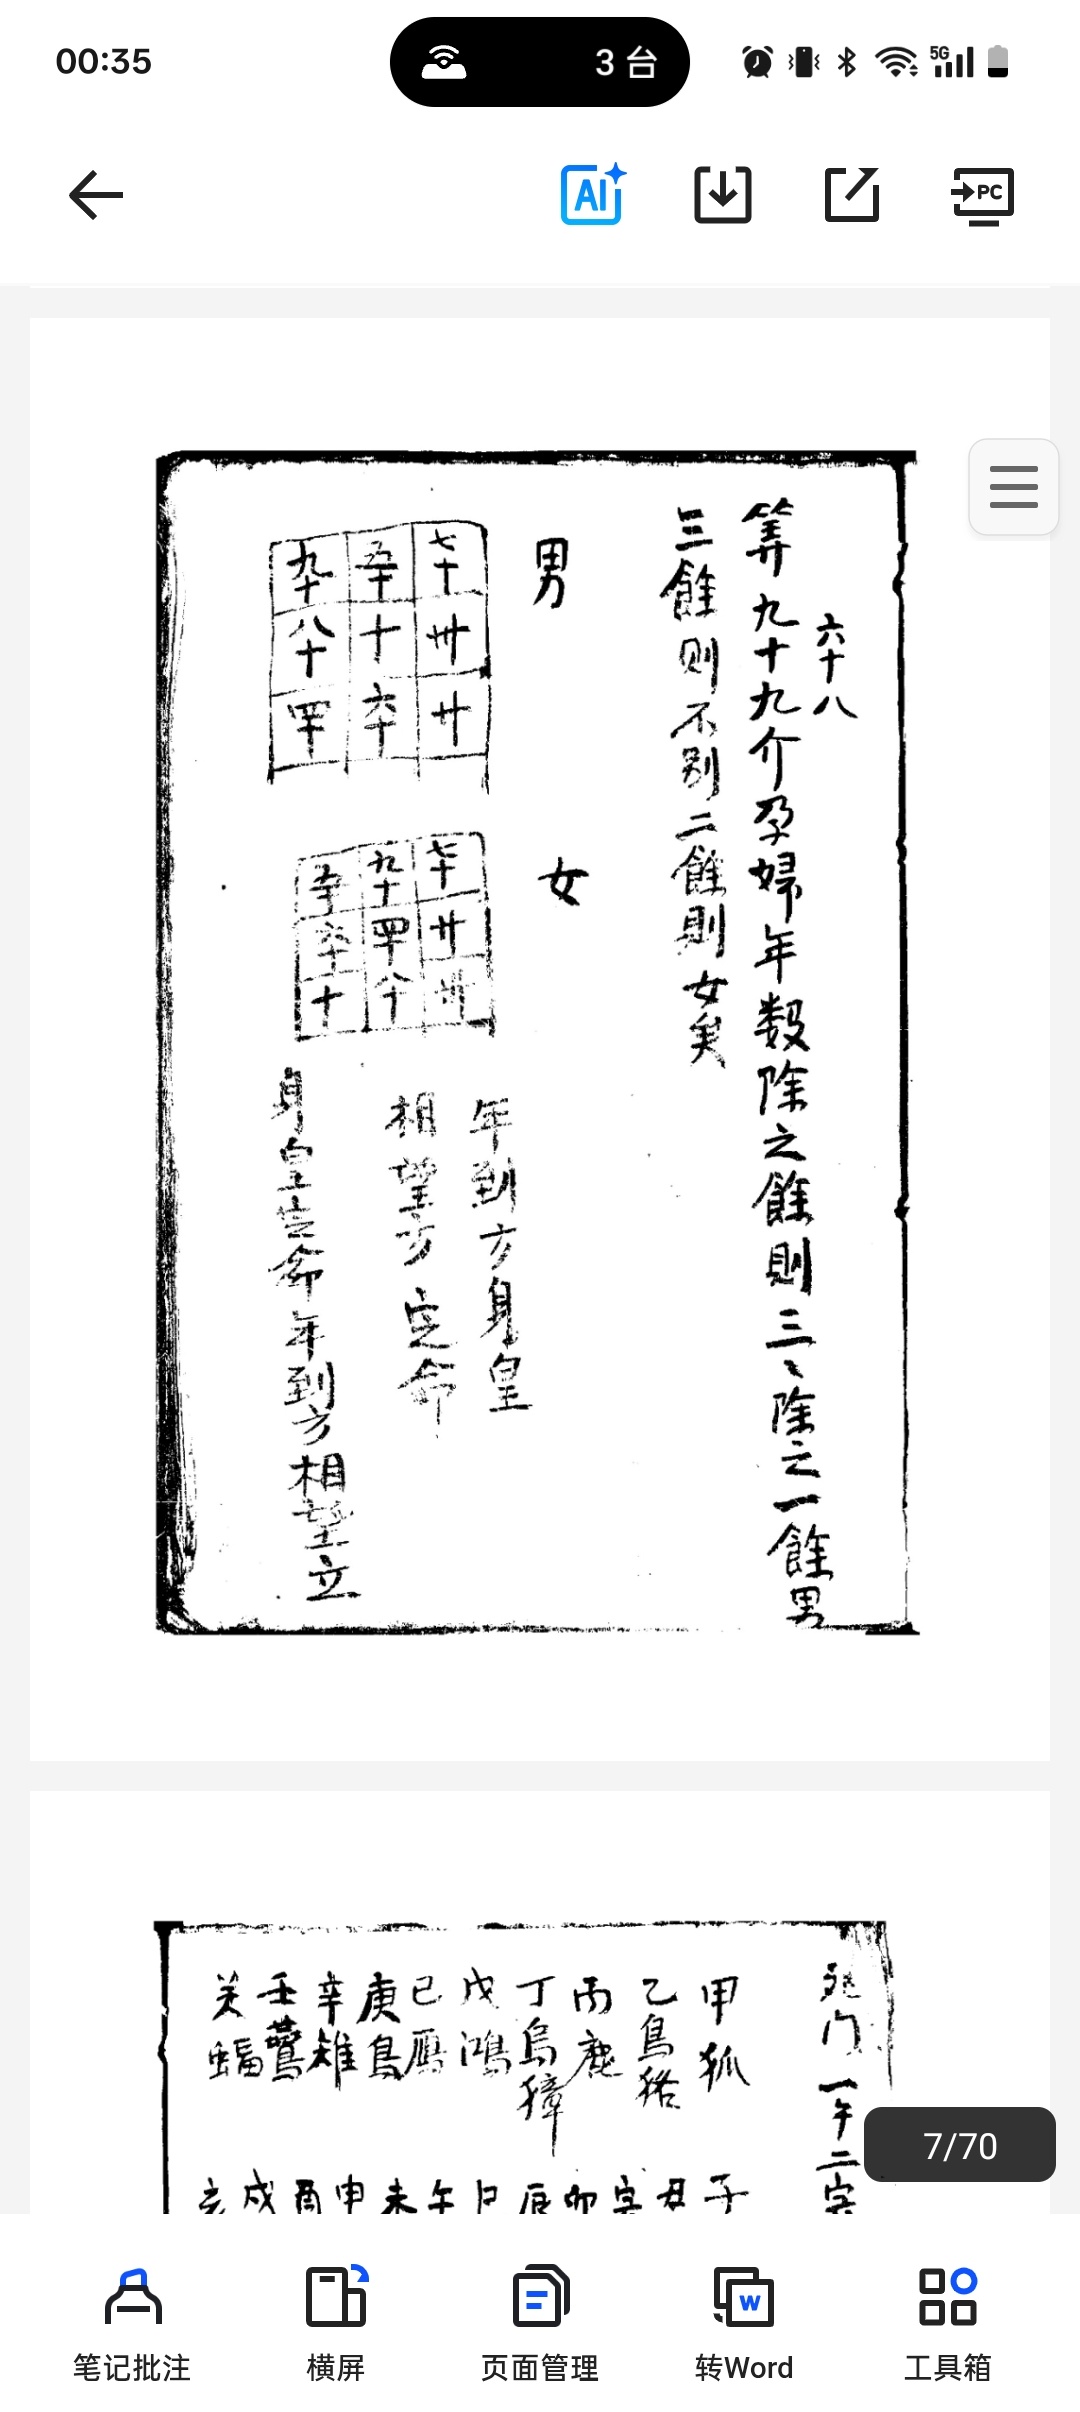 00:35
3 台
5G
AI
PC
六十八
筭九十九介孕婦年数除之餘則三〻除之一餘男
三餘则不别二餘則女矣
男
七十 卅 廿
五十 十 六十
九十 八十 四十
女
七十 廿 卅
九十 四十 八十
五十 六十 十
年到方身皇
相望方定命
身皇定命年到方相望立
死门一午二宗
甲狐
乙鳥狢
丙鹿
丁烏獐
戊鴻
已鴈
庚鳥
辛雉
壬鶯
关蝠
子
丑
寅
卯
辰
巳
午
未
申
酉
戌
亥
7/70
笔记批注
横屏
页面管理
转Word
工具箱